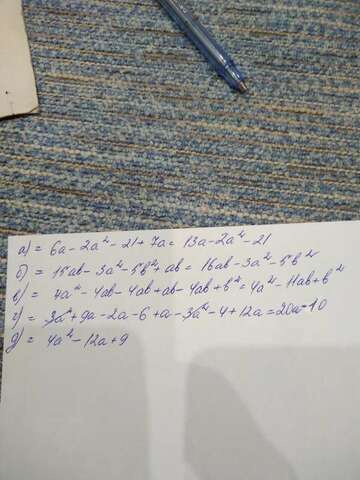 а) = 6a - 2a² - 21 + 7a = 13a - 2a² - 21
б) = 15ab - 3a² - 5b² + ab = 16ab - 3a² - 5b²
в) = 4a² - 4ab - 4ab + ab - 4ab + b² = 4a² - 11ab + b²
г) = 3a² + 9a - 2a - 6 + a - 3a² - 4 + 12a = 20a - 10
д) = 4a² - 12a + 9